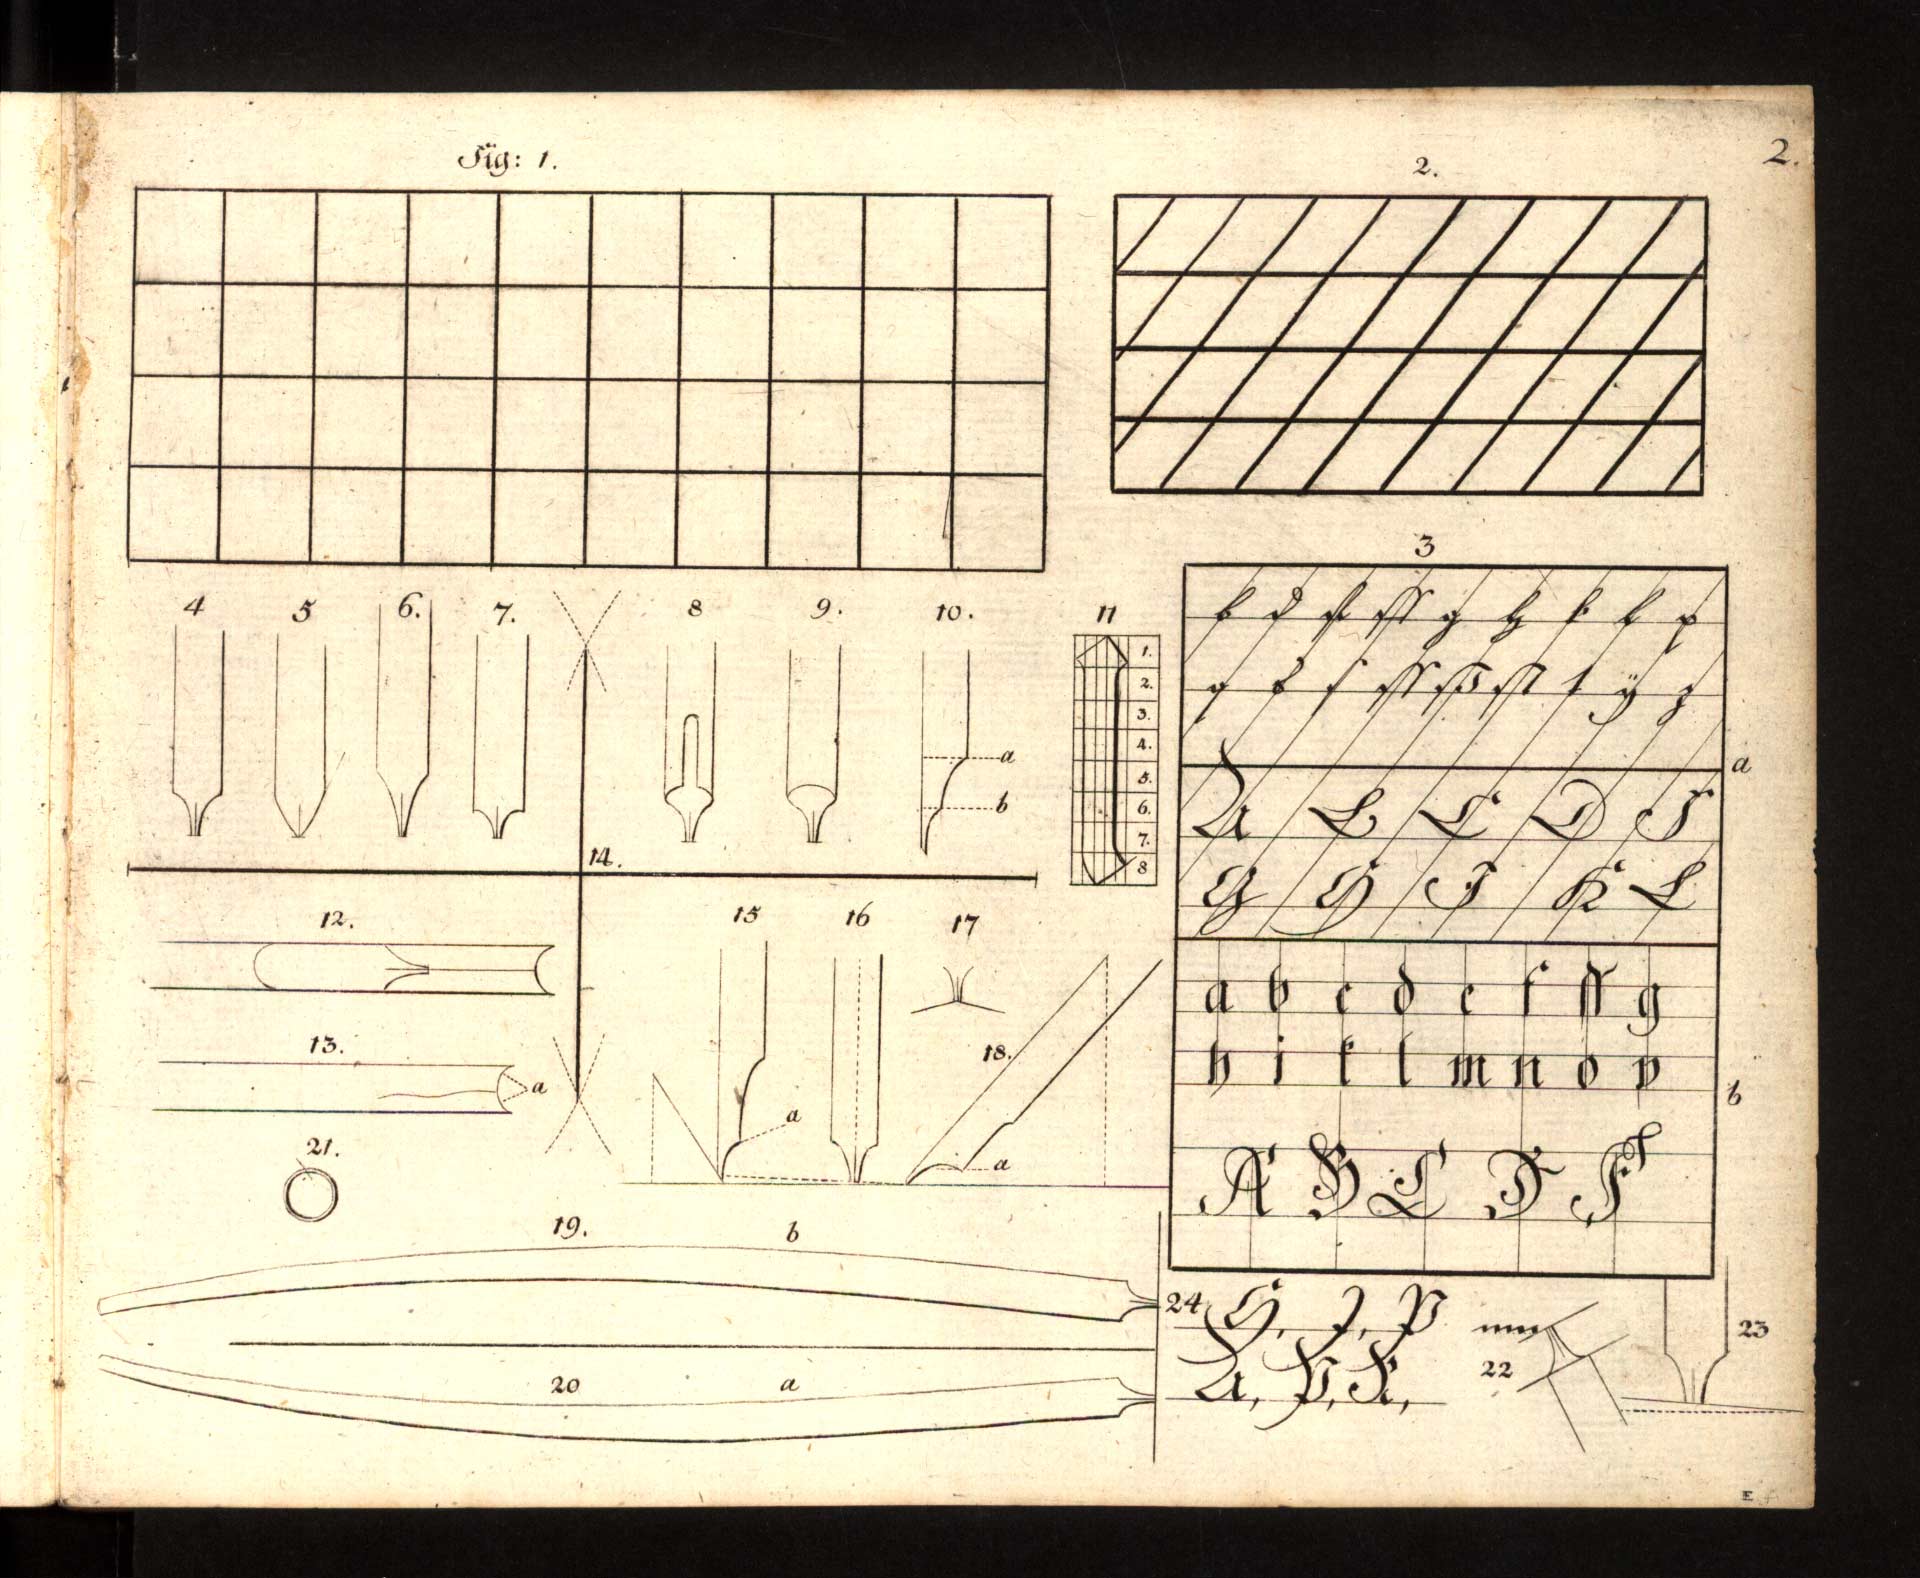 Fig: 1.
2.
2.
3
4 5 6. 7. 8 9. 10. 11
a
b
1.
2.
3.
4.
5.
6.
7.
8
14.
12.
13.
a
15 16 17
18.
a
a
21.
19. b
20 a
a
A L C D
G H J K L
b
a b c d e f ff g
h i k l m n o p
A B C F
24
H, J, P
A, P, K,
22
23
E